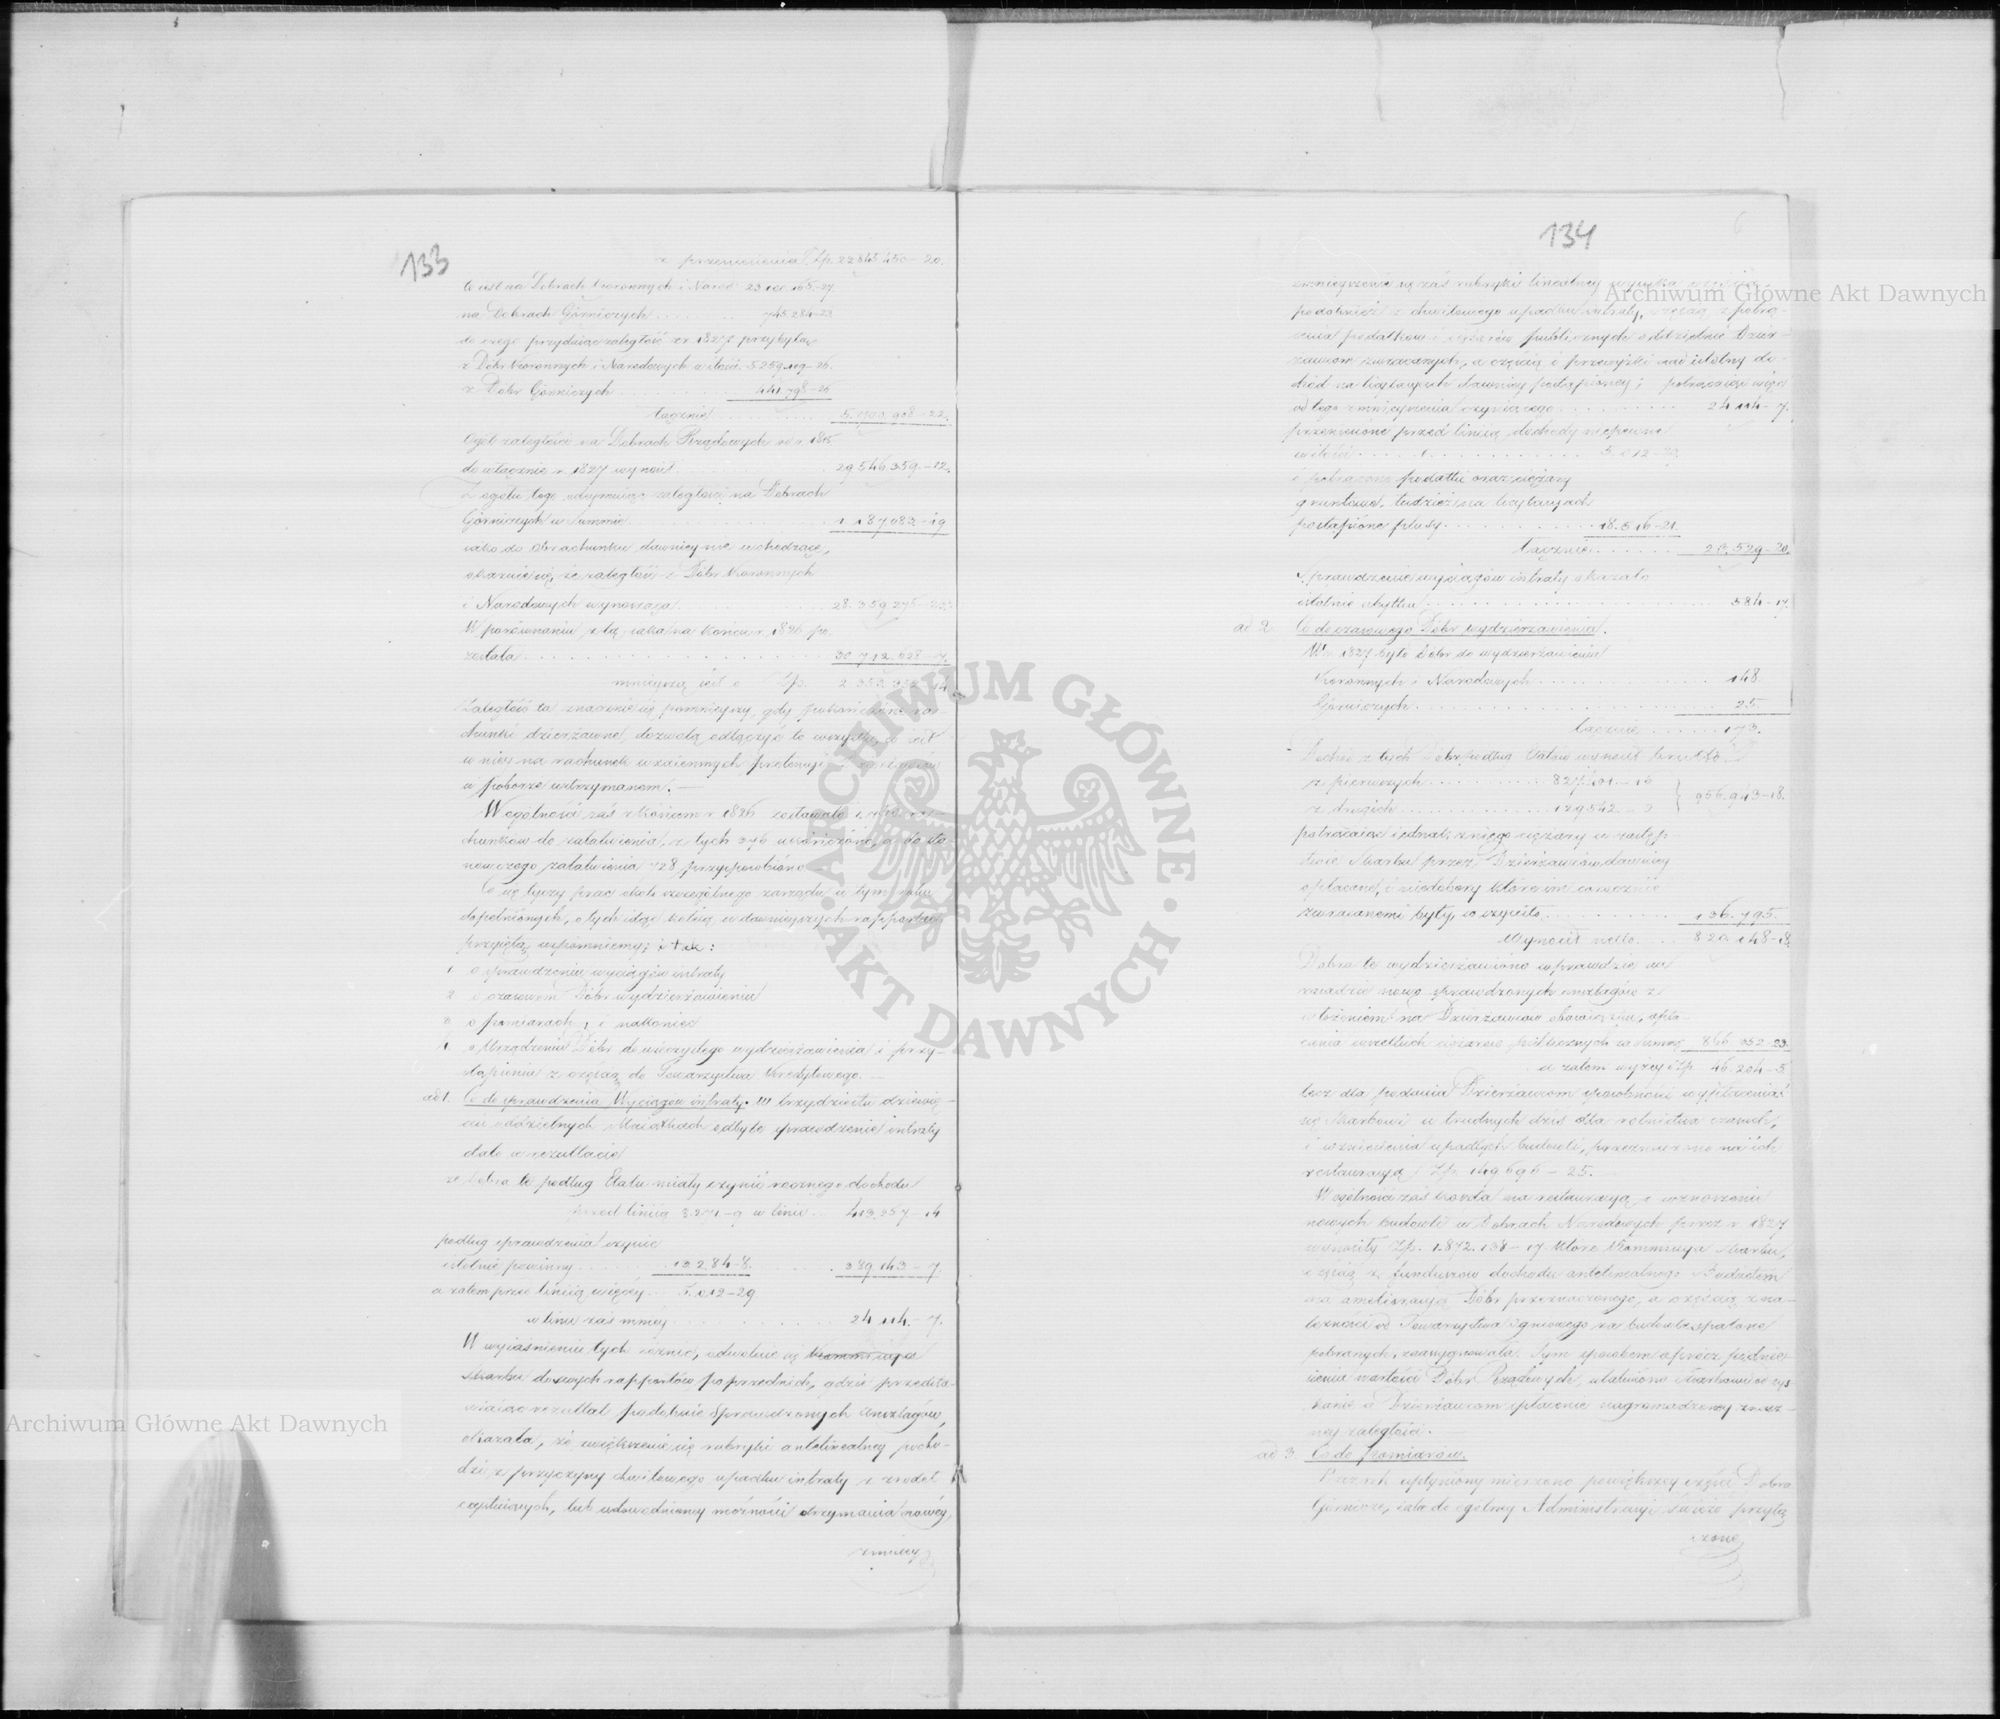 133
z przeniesienia Złp. 22 845 450 – 20.
to iest na Dobrach Koronnych i Narod: 23 100 165 – 27
na Dobrach Górniczych . . . 745 284 – 23
do czego przydaiąc zaległość z r. 1827 przybyłą
z Dóbr Koronnych i Narodowych w ilości 5 259 109 – 26.
z Dóbr Górniczych . . . 441 798 – 26
łącznie . . . 5. 700. 908 – 22.
Ogół zaległości na Dobrach Rządowych od r. 1815
do włącznie r. 1827 wynosi . . . 29 546 359. – 12.
Z ogółu tego odeymuiąc zaległości na Dobrach
Górniczych w Summie . . . 1 187 083 – 19
iako do obrachunku dawniey nie wchodzące,
okazuie się, że zaległość z Dóbr Koronnych
i Narodowych wynosząca . . . 28. 359 275 – 23.
W porównaniu z tą, iaka na końcu r. 1826 po-
została . . . 30 712. 628 – 7.
mnieyszą iest o Złp.
Zaległość ta znacznie się pomnieyszy, gdy pokończone ra-
chunki dzierżawne, dozwolą odłączyć to wszystko, co iest
w niey na rachunek wzaiemnych pretensyi
w poborze wstrzymanem. —
W ogólności zaś z końcem r. 1826 zostawało ra-
chunków do załatwienia, z tych 376 ukończono, a do sta-
nowczego załatwienia 728 przysposobiono —
Co się tyczy prac około szczególnego zarządu w tym roku
dopełnionych, o tych idąc koleią w dawnieyszych rapportach
przyiętą wspomniemy; i tak:
1 o sprawdzeniu wyciągów intraty
2 o czasowem Dóbr wydzierżawieniu
3 o pomiarach, i nakoniec
4. o Urządzeniu Dóbr do wieczystego wydzierżawienia i przy-
stąpieniu z częścią do Towarzystwa Kredytowego. —
ad 1. Co do sprawdzenia Wyciągów intraty. W trzydziestu dziewię-
ciu oddzielnych Maiątkach odbyte sprawdzenie intraty
dało w rezultacie
że dobra te podług Etatu miały czynić rocznego dochodu
przed linią 8. 271. – 9 w linii . . 413. 257 – 14
podług sprawdzenia czynić
istotnie powinny . . . 13 284 – 8. . . . 389 143 – 7
a zatem przed linią więcey . . 5. 012 – 29
w linii zaś mniey . . . 24 114. – 7.
W wyiaśnieniu tych różnic, odwołuie się Kommissya
Skarbu do swych rapportów poprzednich, gdzie przedsta-
wiaiąc rezultat podobnie Sprawdzonych Anszlagów,
okazała, że zwiększenie się rubryki antelinealney pocho-
dzi z przyczyny chwilowego upadku intraty z źródeł
wątpliwych, lub udowodnioney możności otrzymania nowéy,
zmniey
134
6
zmnieyszenie się zaś rubryki linealney wynika częścią
podobnież z chwilowego upadku intraty, częścią z potrą-
cenia podatków i ciężarów publicznych oddzielnie Dzier-
żawcom zwracanych, a częścią i przewyżki nad istotny do-
chód na licytacyach dawniey postąpioney; potrącaiąc więc
od tego zmnieyszenia czyniącego . . . 24 114 – 7.
przeniesione przed linią dochody niepewne
w ilości . . . 5. 012 – 29
i potrącone podatki oraz ciężary
gruntowe, tudzież na licytacyach
postąpione plusy . . . 18. 516 – 21.
łącznie . . . 23. 529 – 20.
Sprawdzenie wyciągów intraty okazało
istotnie ubytku . . . 584 – 17.
ad 2 Co do czasowego Dóbr wydzierżawienia.
W r. 1827 było Dóbr do wydzierżawienia
Koronnych i Narodowych . . . 148
Górniczych . . . 25
łącznie . . . 173.
Dochód z tych Dóbr podług Etatów wynosił brutto
z pierwszych . . . 827. 401 – 16
z drugich . . . 129 542 – 2 } 956. 943 – 18.
potrącaiąc iednak z niego ciężary w zastęp-
stwie Skarbu przez Dzierżawców dawniey
opłacane, i niedobory które im corocznie
zwracanemi były, co czyniło . . . 136. 795.
wynosił netto . . . 820. 148 – 18.
Dobra te wydzierżawiono wprawdzie na
zasadzie nowo sprawdzonych anszlagów z
włożeniem na Dzierżawców obowiązku, opła-
cania wszelkich ciężarów publicznych za Summę 866 352 – 23.
a zatem wyżey o Złp. 46. 204 – 5
lecz dla podania Dzierżawcom sposobności wypłacenia
się Skarbowi w trudnych dziś dla rolnictwa czasach,
i wzniesienia upadłych budowli, przeznaczono na ich
restauracyą Złp. 149 696 – 25. —
W ogólności zaś koszta na restauracyą i wznoszenie
nowych budowli w Dobrach Narodowych przez r. 1827
wynosiły Złp. 1. 872. 138 – 17. które Kommissya Skarbu,
częścią z funduszów dochodu antelinealnego Budżetem
na amelioracyą Dóbr przeznaczonego, a częścią z na-
leżności od Towarzystwa Ogniowego za budowle spalone
pobranych, zaassygnowała. Tym sposobem oprócz podnie-
sienia wartości Dóbr Rządowych, ułatwiono Skarbowi od zys-
kanie a Dzierżawcom spłacenie nagromadzoney znacz-
ney zaległości. —
ad 3. Co do pomiarów.
Przez rok upłyniony mierzono powiększey części Dobra
Górnicze, iako do ogólney Administracyi świeżo przyłą
czone